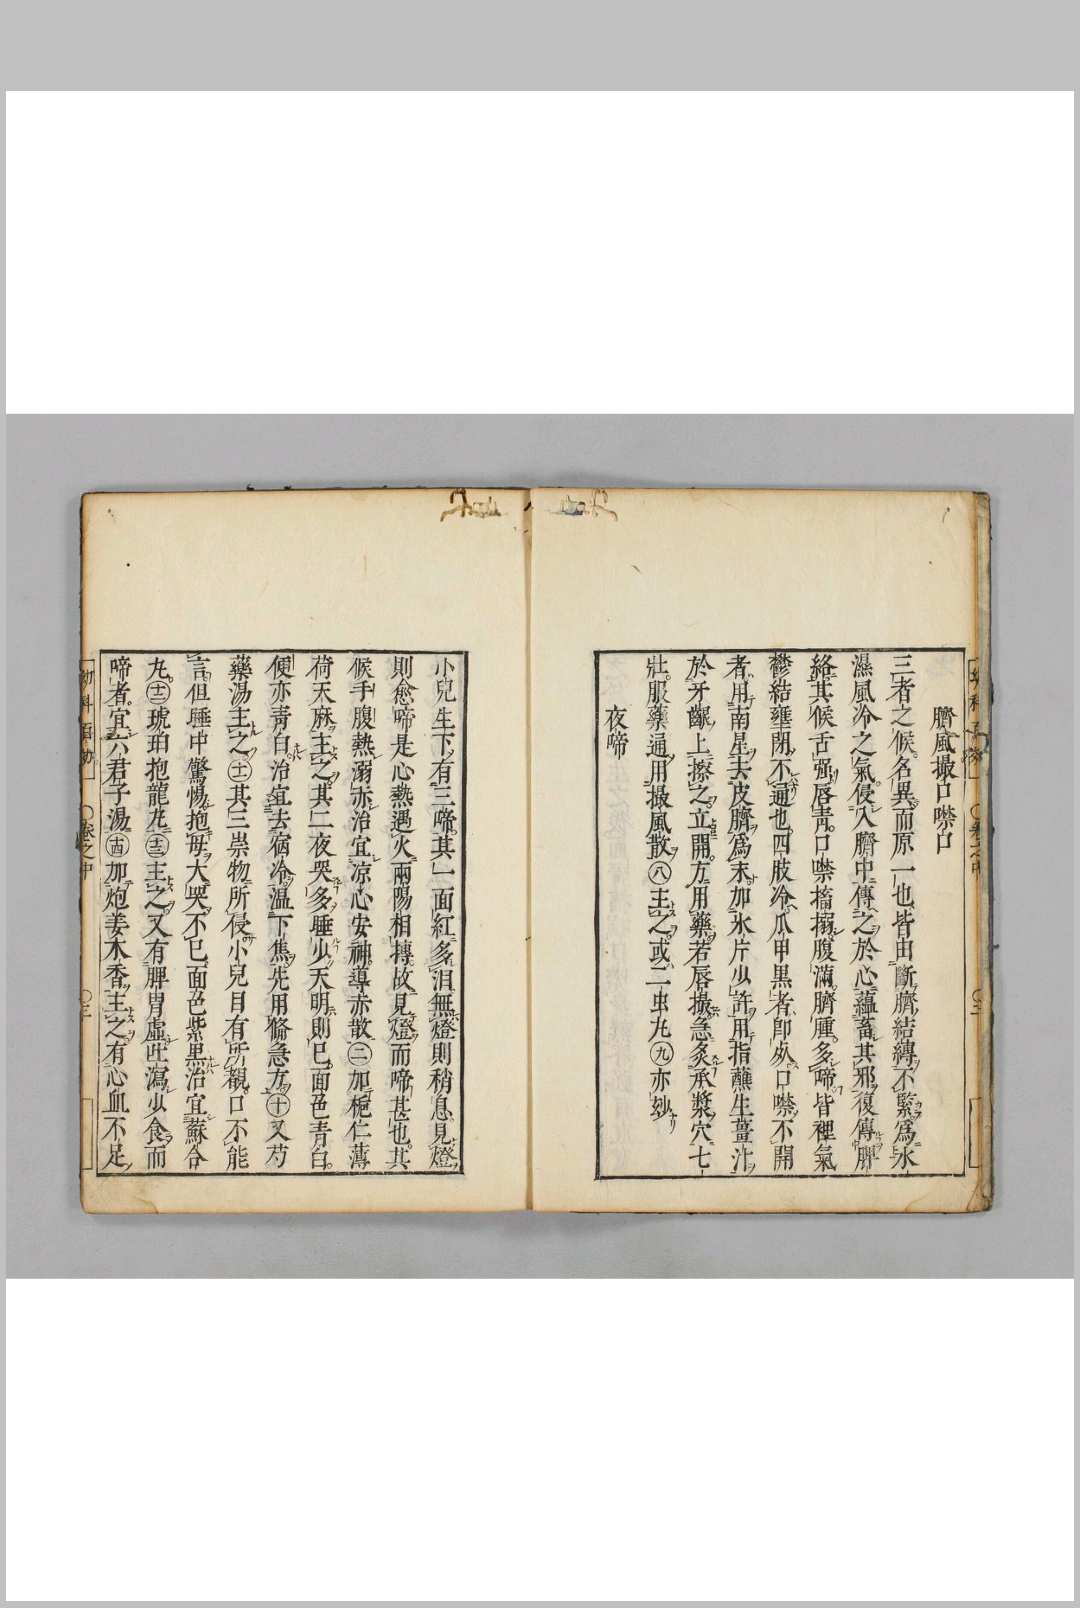 臍風撮口噤口
三者之候名異而原一也皆由斷臍結縛不緊爲水
濕風冷之氣侵入臍中傳之於心蘊畜其邪復傳脾
絡其候舌强唇青口噤搐搦腹滿臍腫多啼皆裡氣
鬱結壅閉不通也四肢冷爪甲黒者卽死口噤不開
者用南星去皮臍爲末加氷片少許用指蘸生薑汁
於牙齦上擦之立開方用藥若唇撮急灸承漿穴七
壯服藥通用撮風散八主之或二虫丸九亦紗
夜啼
小兒生下有三啼其一面紅多泪無燈則稍息見燈
則愈啼是心熱遇火兩陽相摶故見燈而啼甚也其
候手腹熱溺赤治宜凉心安神導赤散二加梔仁薄
荷天麻主之其二夜哭多睡少天明則已面色青白
便亦青白治宜去宿冷温下焦先用條急方十又芍
藥湯主之十一其三祟物所侵小兒目有所覩口不能
言但睡中驚惕抱母大哭不已面色紫黒治宜蘇合
丸十二琥珀抱龍丸十三主之又有脾胃虛吐瀉少食而
啼者宜六君子湯十四加炮姜木香主之有心血不足
卷之中